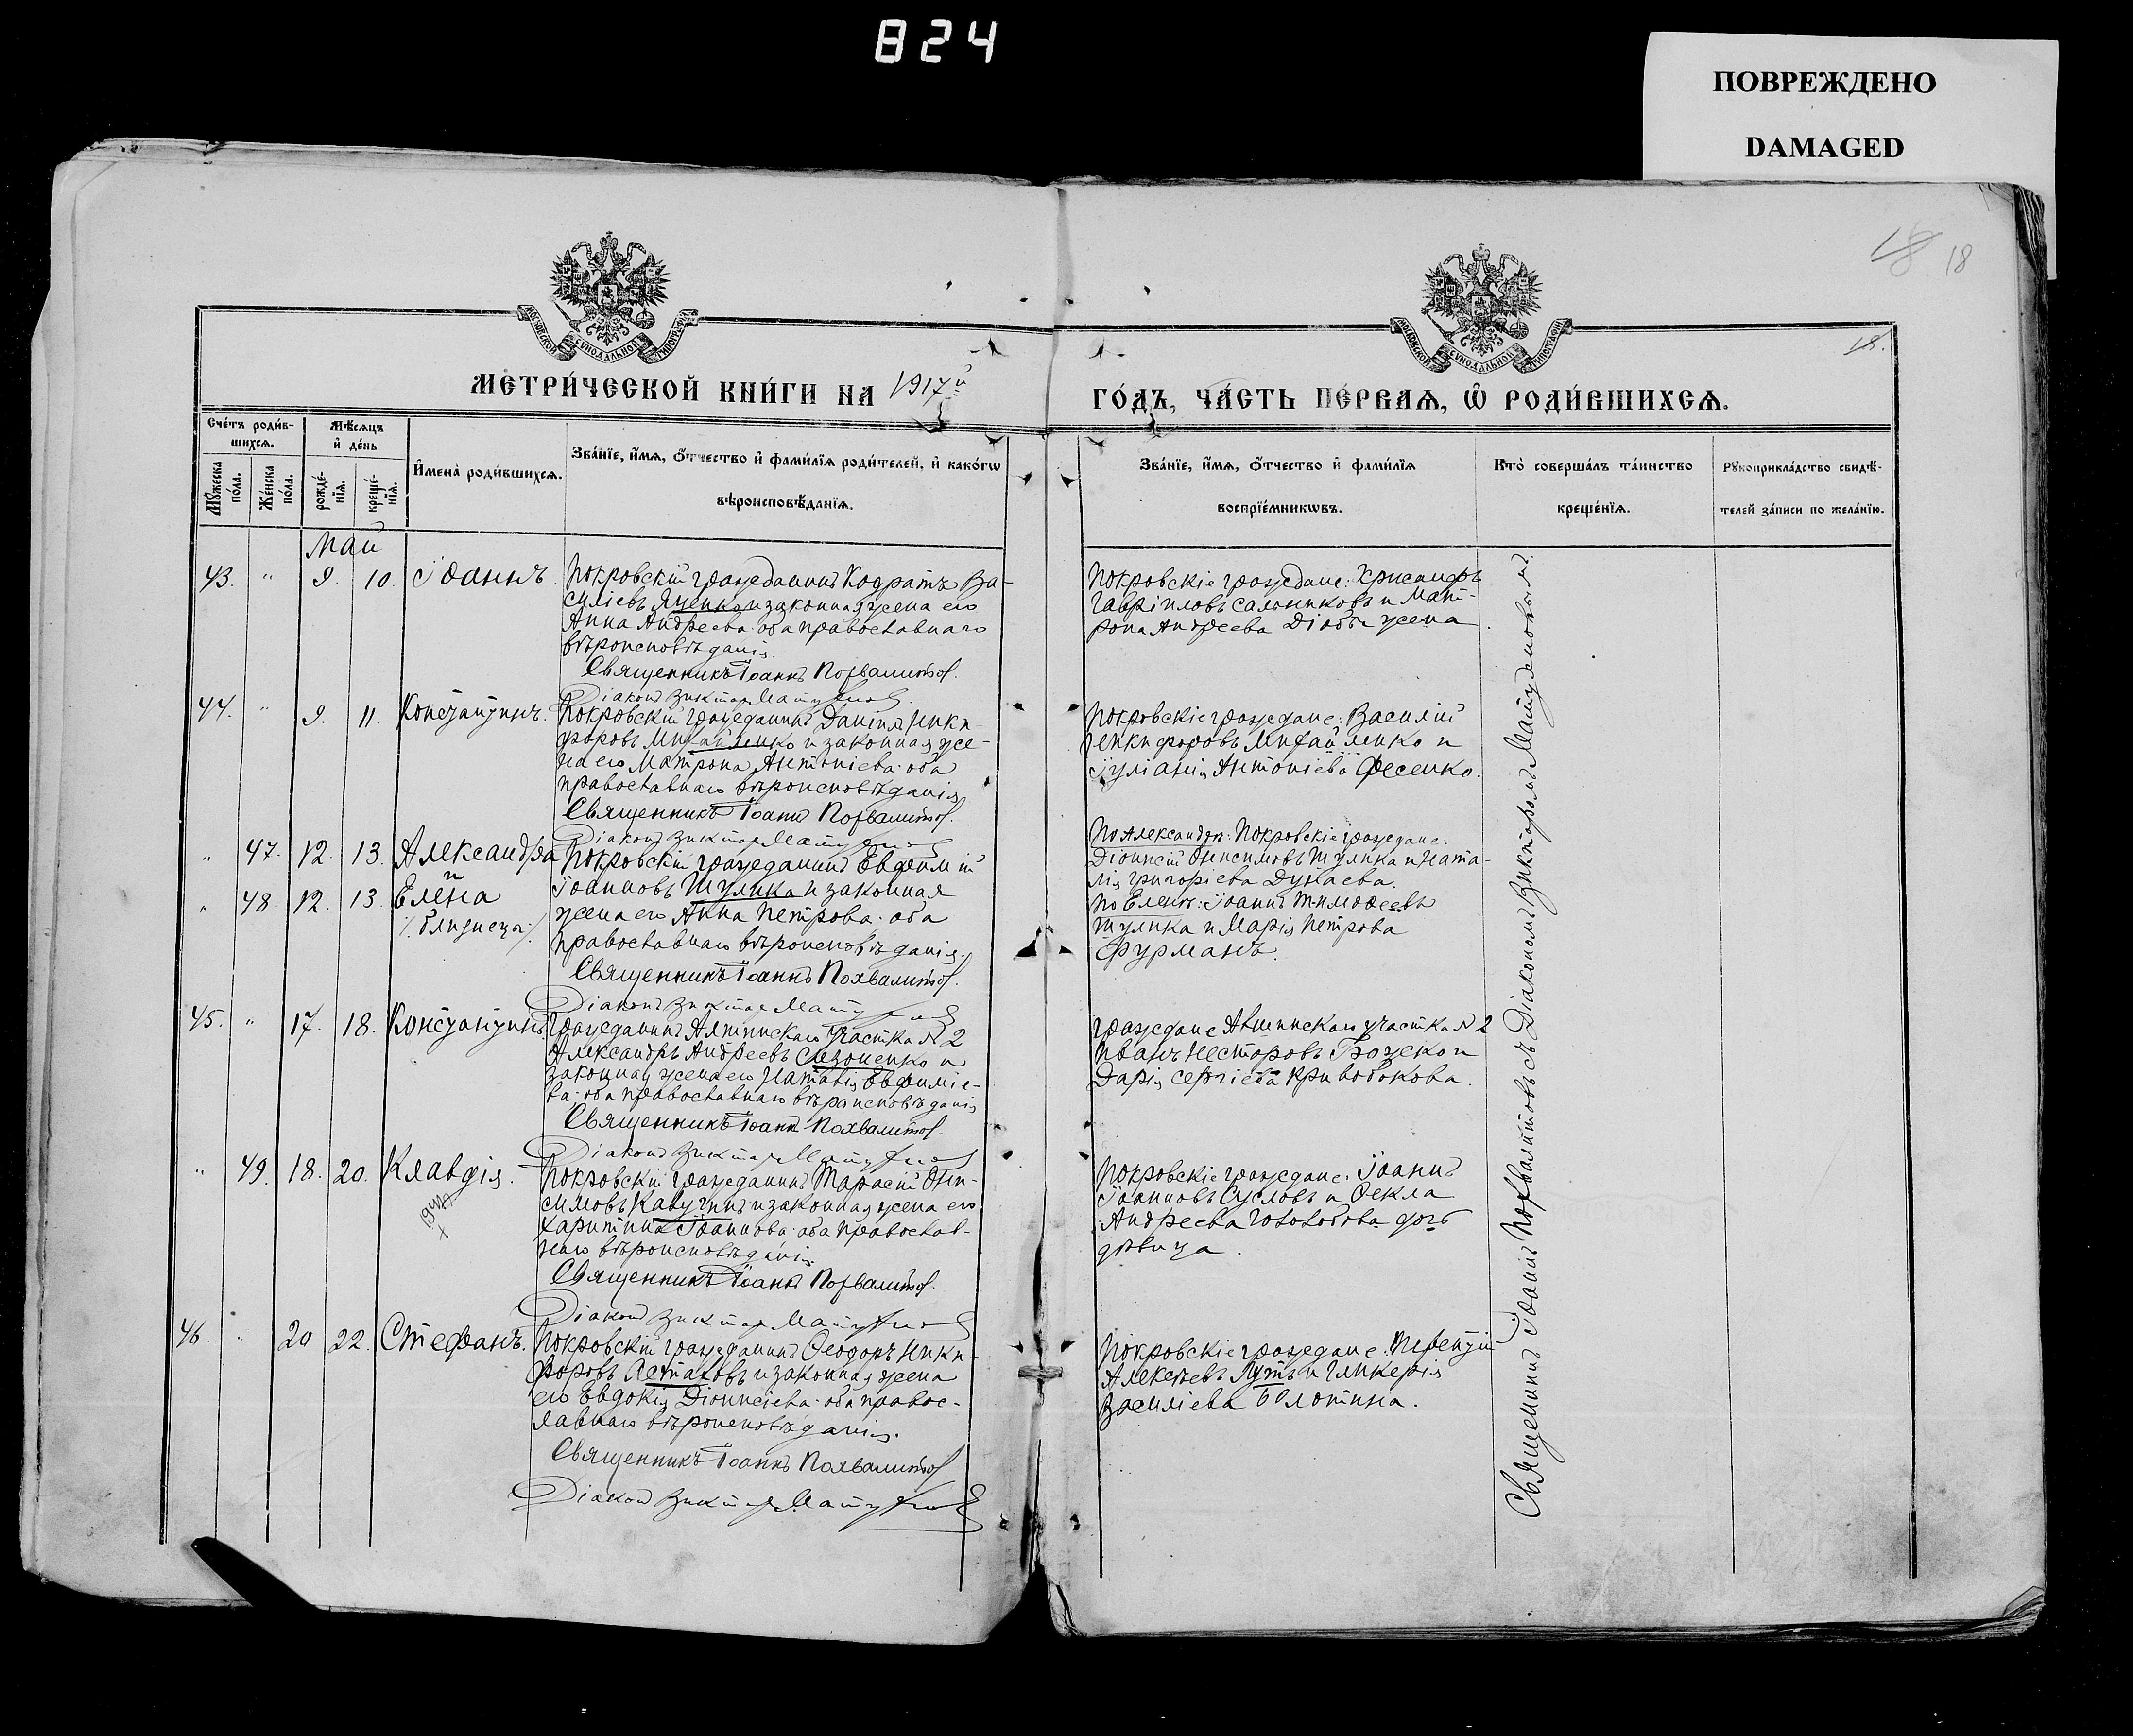 824
ПОВРЕЖДЕНО
DAMAGED
18 18
18.
МОСКОВСКОЙ СѴНОДАЛЬНОЙ ТИПОГРАФІИ
МОСКОВСКОЙ СѴНОДАЛЬНОЙ ТИПОГРАФІИ
МЕТРИ́ЧЕСКОЙ КНИ́ГИ НА 1917й
ГО́ДЪ, ЧА́СТЬ ПЕ́РВАѦ, Ѡ РОДИ́ВШИХСѦ.
Сче́тъ роди́в-
шихсѧ.
Мѣ́сѧцъ
и де́нь
Мꙋ́жеска по́ла.
Же́нска по́ла.
рожде́-
нїѧ.
креще́-
нїѧ.
И҆мена̀ роди́вшихсѧ.
Зва́нїе, и҆́мѧ, ѻ҆́тчество и҆ фами́лїѧ роди́телей, и҆ како́гѡ
вѣроисповѣ́данїѧ.
Зва́нїе, и҆́мѧ, ѻ҆́тчество и҆ фами́лїѧ
воспрїе́мникѡвъ.
Кто̀ соверша́лъ та́инство
креще́нїѧ.
Рꙋкоприкла́дство свидѣ́-
телей за́писи по жела́нїю.
Май
43. " 9. 10. Іоаннъ.
Покровскій гражданинъ Кодратъ Ва-
силіевъ Яценко и законная жена его
Анна Андреева. оба православнаго
вѣроисповѣданія.
Священникъ Іоаннъ Похвалитовъ.
Діаконъ Викторъ
Покровскіе граждане: Хрисанфъ
Гавріиловъ Сальниковъ и Мат-
рона Андреева жена
44. " 9. 11. Константинъ.
Покровскій гражданинъ Даніилъ Ники-
форовъ Михайленко и законная же-
на его Матрона Антоніева. оба
православнаго вѣроисповѣданія.
Священникъ Іоаннъ Похвалитовъ.
Діаконъ Викторъ
Покровскіе граждане: Василій
Никифоровъ Михайленко и
Іуліанія Антоніева Фесенко.
" 47. 12. 13. Александра
и
" 48. 12. 13. Елена
/близнецы/
Покровскій гражданинъ Евфимій
Іоанновъ Шулика и законная
жена его Анна Петрова. оба
православнаго вѣроисповѣданія.
Священникъ Іоаннъ Похвалитовъ.
Діаконъ Викторъ
По Александрѣ: Покровскіе граждане:
Діонисій Онисимовъ Шулика и Ната-
лія Григоріева Дунаева.
По Еленѣ: Іоаннъ Тимоѳеевъ
Шулика и Марія Петрова
Фурманъ.
45. " 17. 18. Константинъ.
гражданинъ участка № 2
Александръ Андреевъ Сизоненко и
законная жена его Наталія Евфиміе-
ва. оба православнаго вѣроисповѣданія
Священникъ Іоаннъ Похвалитовъ.
Діаконъ Викторъ
граждане участка № 2
Иванъ Несторовъ Божеко и
Дарія Сергіева Кривобокова.
" 49. 18. 20. Клавдія.
Покровскій гражданинъ Тарасій Они-
симовъ Кавунинъ и законная жена его
Харитина Іоаннова. оба православ-
наго вѣроисповѣданія.
Священникъ Іоаннъ Похвалитовъ.
Діаконъ Викторъ
Покровскіе граждане: Іоаннъ
Іоанновъ Сусловъ и Ѳекла
Андреева дочь
дѣвица.
46. " 20 22. Стефанъ.
Покровскій гражданинъ Ѳеодоръ Ники-
форовъ и законная жена
его Евдокія Діонисіева. оба правос-
лавнаго вѣроисповѣданія.
Священникъ Іоаннъ Похвалитовъ
Діаконъ Викторъ
Покровскіе граждане: Терентій
Алексѣевъ Лутъ и Гликерія
Василіева Болотина.
Священникъ Іоаннъ Похвалитовъ съ Діакономъ Викторомъ